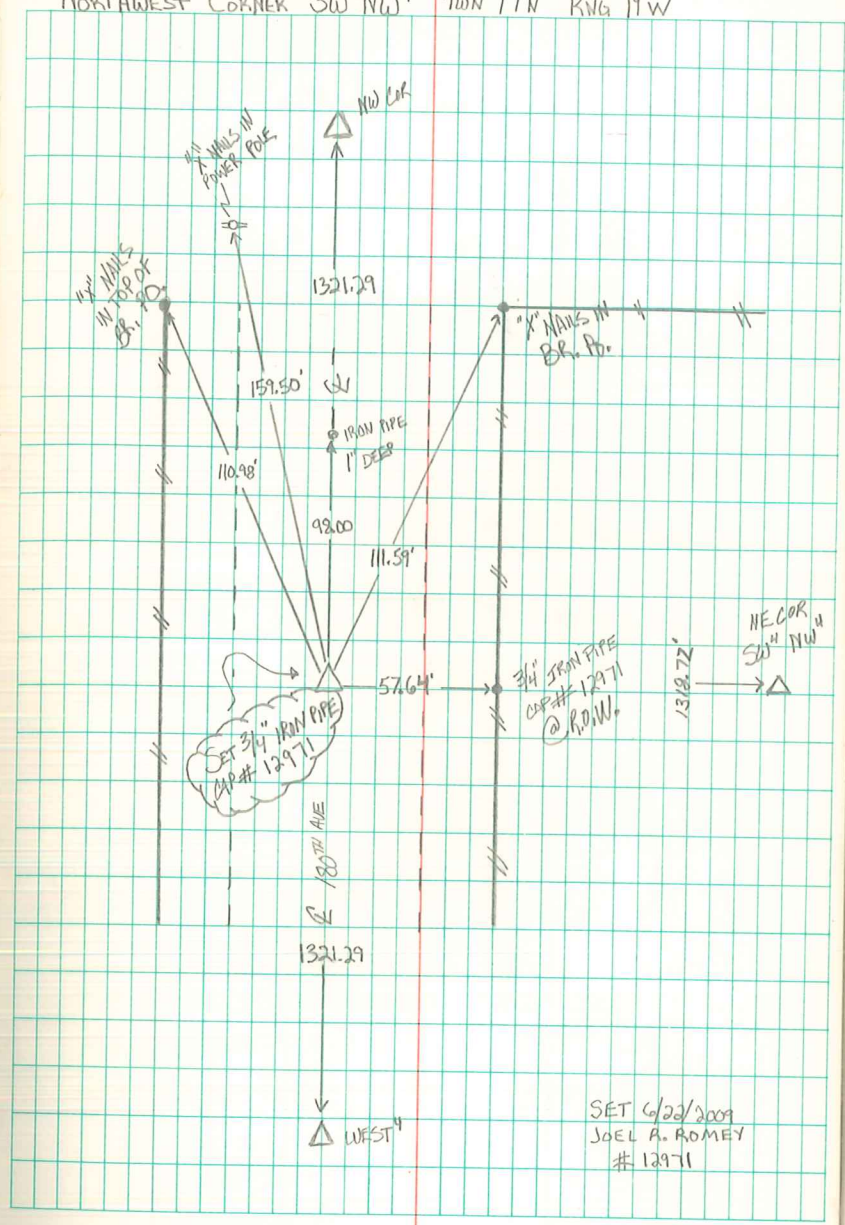 NORTHWEST CORNER SW NW⁴ TWN 17N RNG 19W
NW COR
"X" NAILS IN
POWER POLE
"X" NAILS
IN TOP OF
BR. PO.
1321.29
"X" NAILS IN
BR. PO.
159.50'
℄
IRON PIPE
1" DEEP
110.98'
98.00
111.59'
NE COR
SW⁴ NW⁴
1318.72'
57.64'
3/4" IRON PIPE
CAP# 12971
@ R.O.W.
SET 3/4" IRON PIPE
CAP# 12971
℄ 180TH AVE
1321.29
WEST⁴
SET 6/22/2009
JOEL R. ROMEY
# 12971